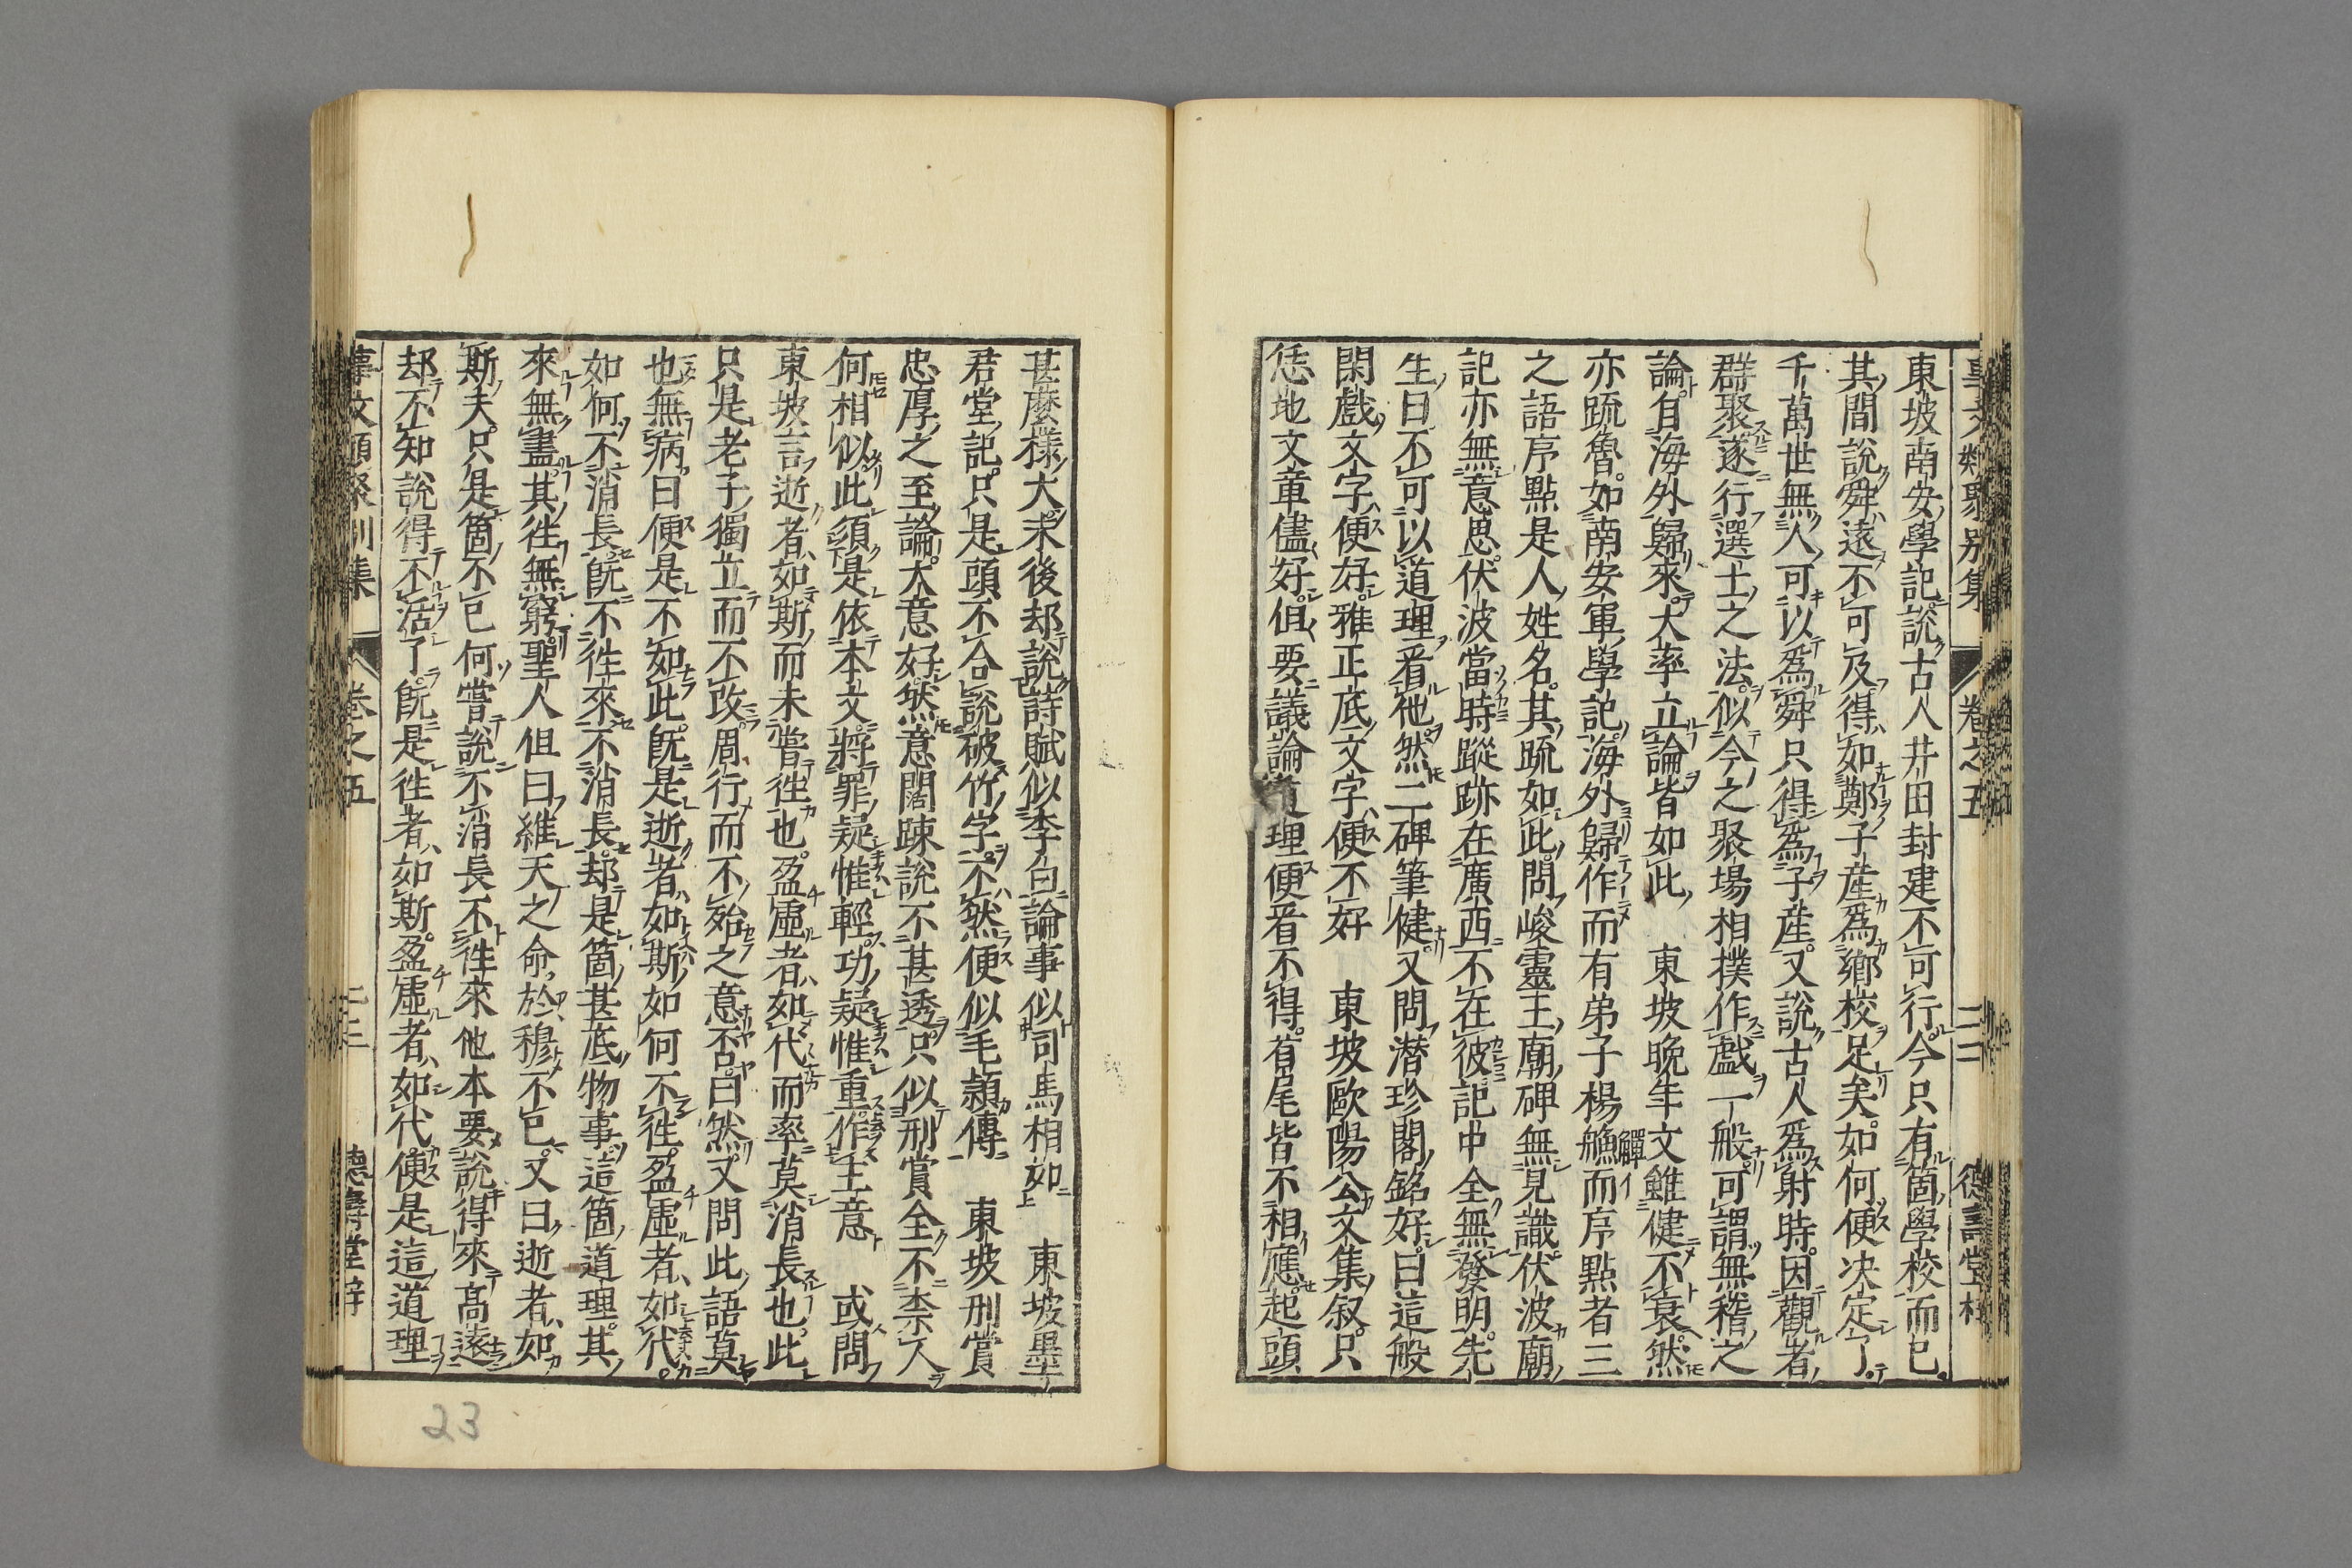 事文類聚別集　卷之五　二二　德壽堂梓
東坡南安學記說古人井田封建不可行今只有箇學校而已
其間說舜遠不可及得如鄭子產爲鄉校足矣如何便决定了
千萬世無人可以爲舜只得爲子產又說古人爲射時因觀者
群聚遂行選士之法似今之聚場相撲作戲一般可謂無稽之
論自海外歸來大率立論皆如此　東坡晚年文雖健不衰然
亦踈魯如南安軍學記海外歸作而有弟子楊觶而序點者三
之語序點是人姓名其踈如此問峻靈王廟碑無見識伏波廟
記亦無意思伏波當時蹤跡在廣西不在彼記中全無發明先
生曰不可以道理看他然二碑筆健又問潜珍閣銘好曰這般
閑戲文字便好雅正底文字便不好　東坡歐陽公文集叙只
恁地文章儘好但要議論道理便看不得首尾皆不相應起頭
甚麼樣大末後却說詩賦似李白論事似司馬相如　東坡墨
君堂記只是頭不合說破竹字不然便似毛頴傳　東坡刑賞
忠厚之至論大意好然意闊踈說不甚透只似刑賞全不柰人
何相似此須是依本文將罪疑惟輕功疑惟重作主意　或問
東坡言逝者如斯而未嘗徃也盈虛者如代而率莫消長也此
只是老子獨立而不改周行而不殆之意否曰然又問此語莫
也無病曰便是不如此旣是逝者如斯如何不徃盈虛者如代
如何不消長旣不徃來不消長却是箇甚底物事這箇道理其
來無盡其徃無窮聖人但曰維天之命於穆不已又曰逝者如
斯夫只是箇不已何嘗說不消長不徃來他本要說得來高遠
却不知說得不活了旣是徃者如斯盈虛者如代便是這道理
事文類聚別集　卷之五　二三　德壽堂梓
23